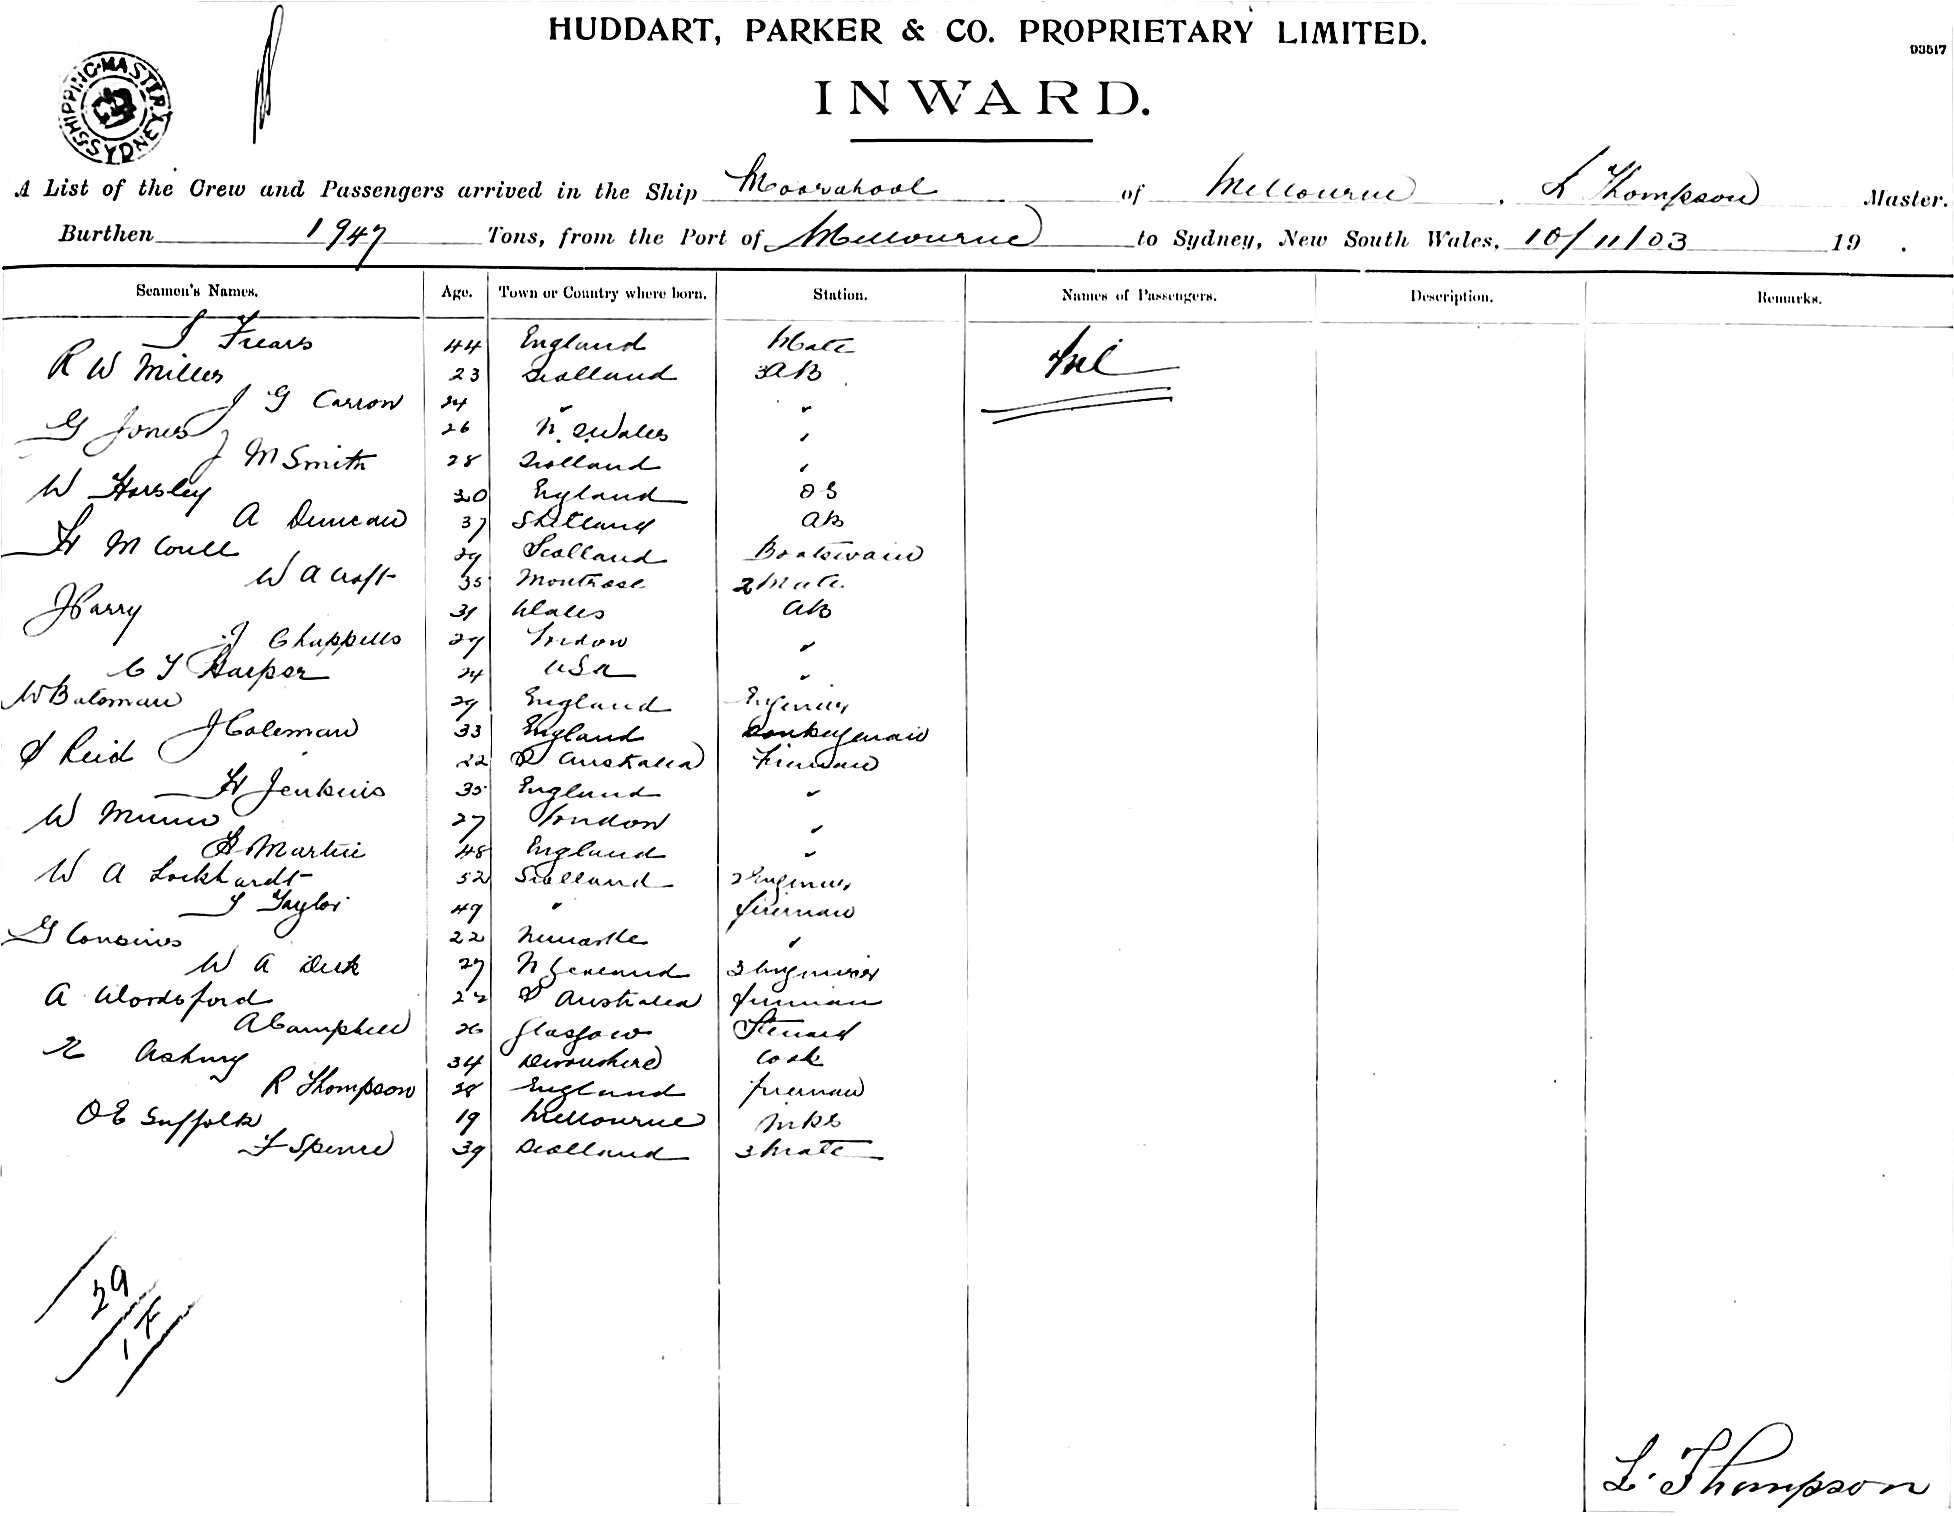 HUDDART, PARKER & CO. PROPRIETARY LIMITED.
03517
INWARD.
SHIPPING MASTER SYDNEY
A List of the Crew and Passengers arrived in the Ship Moorabool of Melbourne, L Thompson Master.
Burthen 1947 Tons, from the Port of Melbourne to Sydney, New South Wales, 10/11/03 19 .
Seamen's Names. Age. Town or Country where born. Station. Names of Passengers. Description. Remarks.
Frears 44 England Mate Nil
R W Miller 23 Scotland AB
J G Carron 24 " "
G Jones 26 N. S. Wales "
J M Smith 28 Scotland "
W Horsley 20 England OS
A Duncan 37 Shetland AB
H McCoull 29 Scotland Boatswain
W A Croft 35 Montrose 2 Mate
J Parry 31 Wales AB
J Chappells 29 London "
C T Harper 24 USA "
W Bateman 29 England Engineer
J Coleman 33 England Donkeyman
S Reid 22 S Australia Fireman
H Jenkins 35 England "
W Munro 27 London "
H Martin 48 England "
W A Lockhardt 52 Scotland 2 Engineer
T Taylor 49 " fireman
G Cousins 22 Newcastle "
W A Dick 27 N Zealand 3 Engineer
A Wordsford 22 S Australia fireman
A Campbell 26 Glasgow Steward
Asbury 34 Devonshire Cook
R Thompson 28 England fireman
O E Suffolk 19 Melbourne
F Spence 39 Scotland 3 Mate
29
L. Thompson